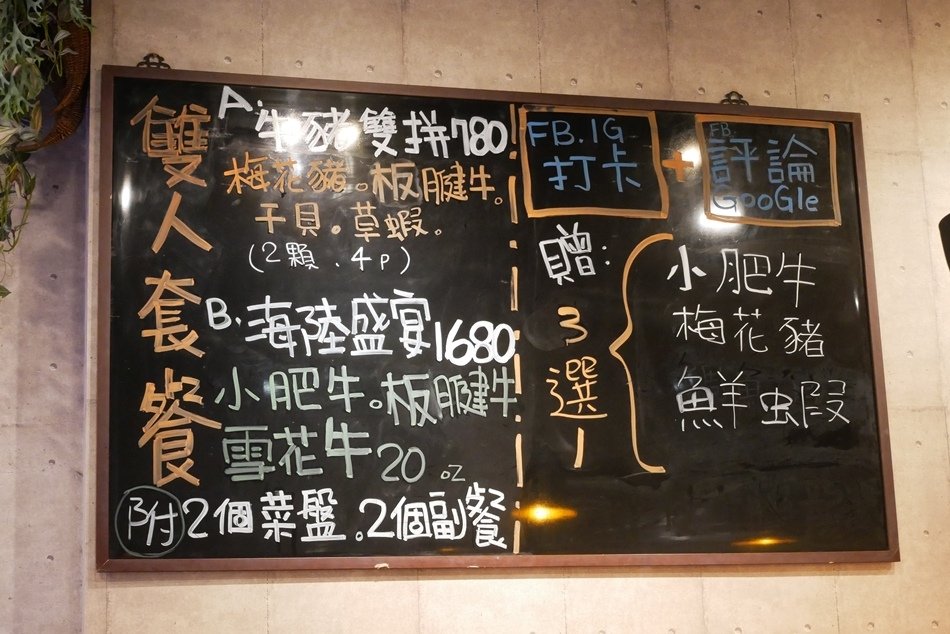 雙人套餐
A. 牛豬雙拼780
梅花豬。板腱牛。
干貝。草蝦。
(2顆、4P)
B. 海陸盛宴1680
小肥牛。板腱牛
雪花牛20oz
附2個菜盤。2個副餐
FB.IG
打卡
+
FB.
評論
GooGle
贈:
3選1
小肥牛
梅花豬
鮮蝦